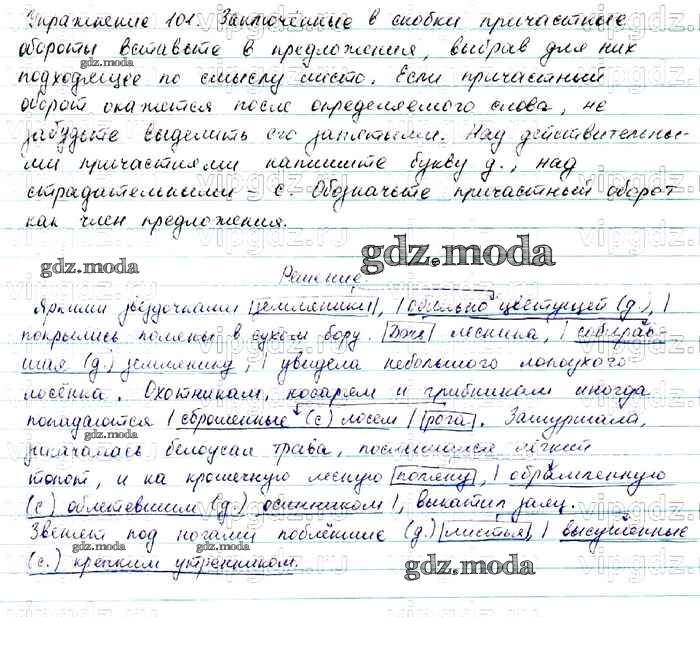 Упражнение 101. Заключённые в скобки причастные
обороты вставьте в предложения, выбрав для них
подходящее по смыслу место. Если причастный
оборот окажется после определяемого слова, не
забудьте выделить его запятыми. Над действительны-
ми причастиями напишите букву д., над
страдательными - с. Обозначьте причастный оборот
как член предложения.
Решение.
Яркими звёздочками |земляники|, |обильно цветущей (д.),|
покрылись поляны в сухом бору. |Дочь| лесника, |собирав-
шая (д.) землянику,| увидела небольшого лопоухого
лосёнка. Охотникам, косарям и грибникам иногда
попадаются |сброшенные (с) лосем| |рога|. Зашуршала,
закачалась белоусая трава, послышался лёгкий
топот, и на крошечную лесную |поляну|, |обрамленную
(с) облетевшим (д.) осинником|, выкатил заяц.
Звенят под ногами поблёкшие (д.) |листья|, |высушенные
(с.) крепким утренником.
gdz.moda
gdz.moda
gdz.moda
gdz.moda
gdz.moda
gdz.moda
gdz.moda
gdz.moda
gdz.moda
vipgdz.ru